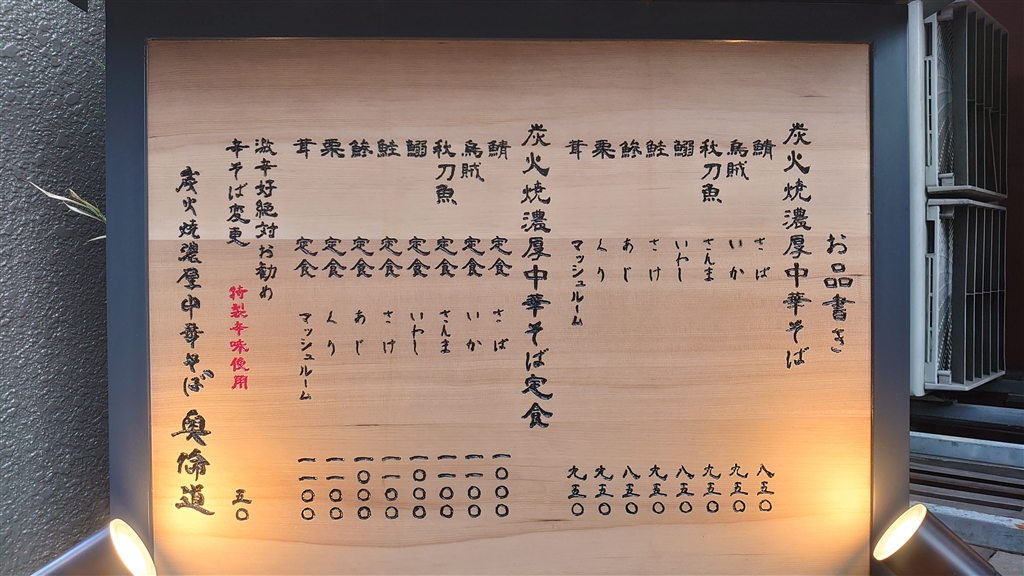 お品書き
炭火焼濃厚中華そば
鯖 さば 八五〇
烏賊 いか 九五〇
秋刀魚 さんま 九五〇
鰯 いわし 八五〇
鮭 さけ 九五〇
鯵 あじ 八五〇
栗 くり 九五〇
茸 マッシュルーム 九五〇
炭火焼濃厚中華そば定食
鯖 定食 さば 一〇〇〇
烏賊 定食 いか 一一〇〇
秋刀魚 定食 さんま 一一〇〇
鰯 定食 いわし 一〇〇〇
鮭 定食 さけ 一一〇〇
鯵 定食 あじ 一〇〇〇
栗 定食 くり 一一〇〇
茸 定食 マッシュルーム 一一〇〇
激辛好絶対お勧め
辛そば変更 特製辛味使用 五〇
炭火焼濃厚中華そば 奥倫道